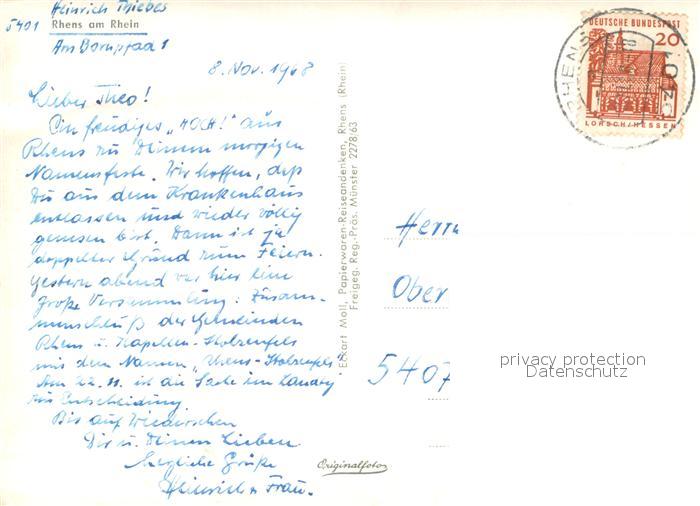 Heinrich
5401 Rhens am Rhein
Am Bornpfad 1
8. Nov. 1968
Lieber Theo!
Ein freudiges „HOCH!" aus
Rhens zu Deinem morgigen
Namensfeste. Wir hoffen, daß
Du aus dem Krankenhaus
entlassen und wieder völlig
genesen bist. Dann ist ja
doppelter Grund zum Feiern.
Gestern abend war hier eine
große Versammlung: Zusam-
menschluß der Gemeinden
Rhens u. Kapellen-Stolzenfels
mit dem Namen „Rhens-Stolzenfels"
Am 22. 11. ist die Sache im Landtg
zur Entscheidung
Bis auf Wiedersehen
Dir u. Deinen Lieben
herzliche Grüße
Heinrich u. Frau.
Eckart Moll, Papierwaren-Reiseandenken, Rhens (Rhein)
Freigeg. Reg.-Präs. Münster 2278/63
Originalfoto
DEUTSCHE BUNDESPOST
20
LORSCH/HESSEN
RHENS
Herrn
Ober
5407
privacy protection
Datenschutz